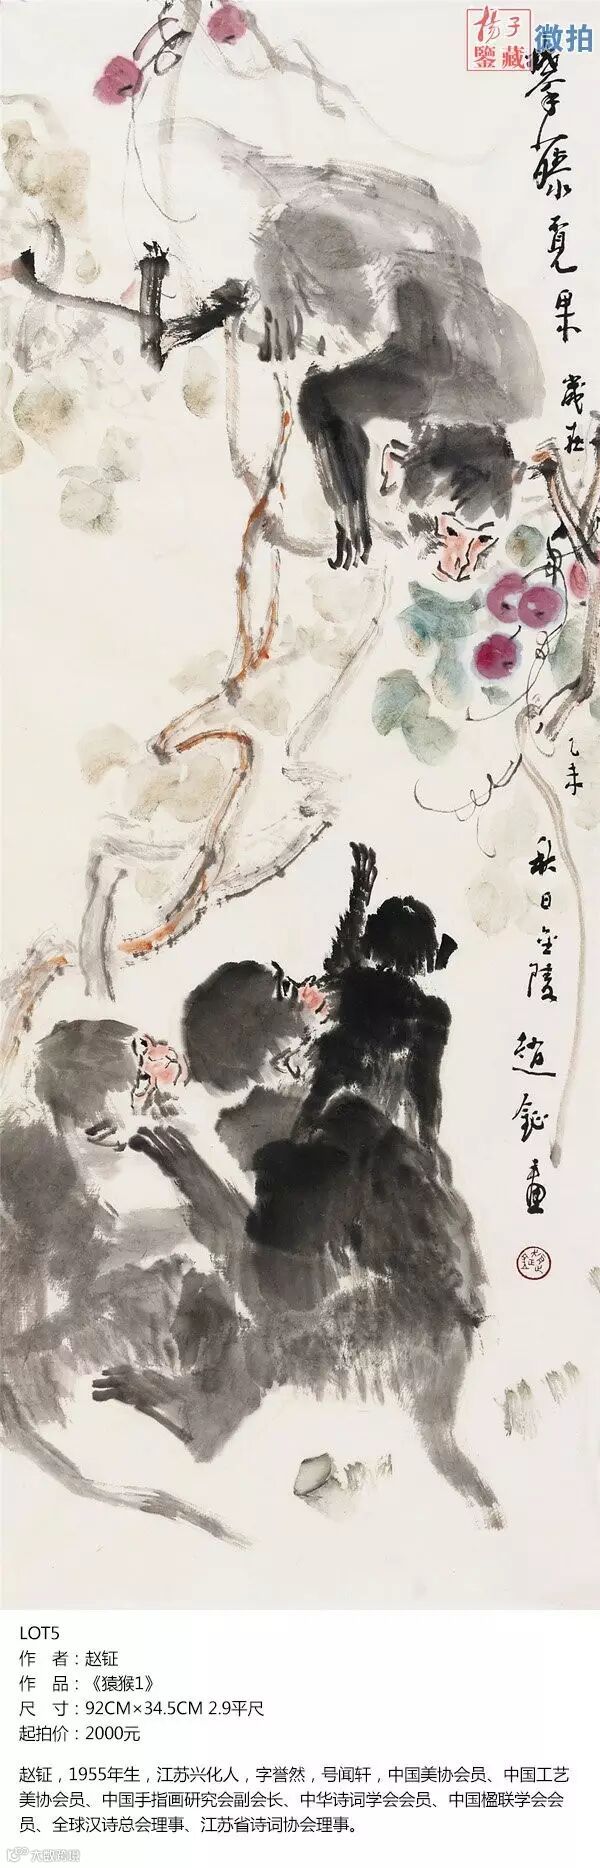 揚子
鑒藏
微拍
攀藤覓果
歲在
乙未
秋日金陵趙鉦畫
LOT5
作 者：赵钲
作 品：《猿猴1》
尺 寸：92CM×34.5CM 2.9平尺
起拍价：2000元
赵钲，1955年生，江苏兴化人，字誉然，号闻轩，中国美协会员、中国工艺
美协会员、中国手指画研究会副会长、中华诗词学会会员、中国楹联学会会
员、全球汉诗总会理事、江苏省诗词协会理事。
大数跨境